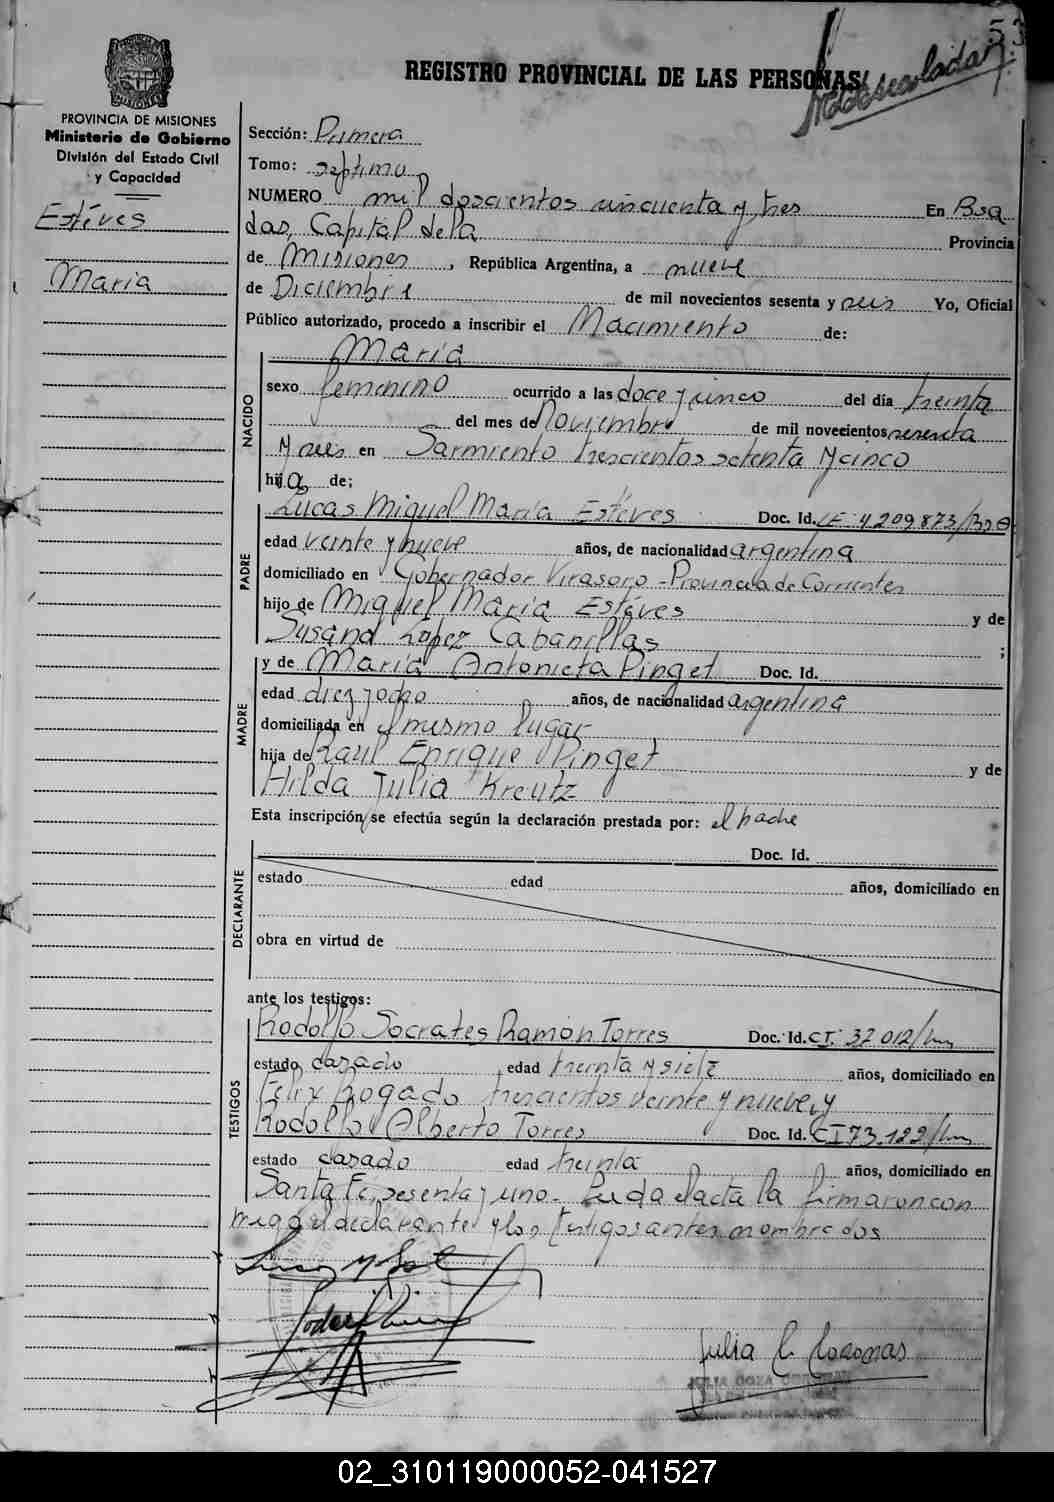 53
REGISTRO PROVINCIAL DE LAS PERSONAS
PROVINCIA DE MISIONES
Ministerio de Gobierno
División del Estado Civil
y Capacidad
Estéves
María
Sección: Primera
Tomo: septimo
NUMERO mil doscientos cincuenta y tres En Posa
das, Capital dela Provincia
de Misiones, República Argentina, a nueve
de Diciembre de mil novecientos sesenta y seis Yo, Oficial
Público autorizado, procedo a inscribir el Nacimiento de:
NACIDO
María
sexo femenino ocurrido a las doce y cinco del día treinta
del mes de Noviembre de mil novecientos sesenta
y seis en Sarmiento trescientos setenta y cinco
hija de;
PADRE
Lucas Miguel María Estéves Doc. Id. LE 4.209.873
edad veinte y nueve años, de nacionalidad argentina
domiciliado en Gobernador Virasoro - Provincia de Corrientes
hijo de Miguel María Estéves y de
Susana López Cabanillas ;
MADRE
y de María Antonieta Pinget Doc. Id.
edad diez y ocho años, de nacionalidad argentina
domiciliada en el mismo lugar
hija de Raúl Enrique Pinget y de
Hilda Julia Kreutz
Esta inscripción se efectúa según la declaración prestada por: el padre
DECLARANTE
Doc. Id.
estado edad años, domiciliado en
obra en virtud de
ante los testigos:
TESTIGOS
Rodolfo Socrates Ramón Torres Doc. Id. CI. 37.012
estado casado edad treinta y siete años, domiciliado en
Felix Bogado trescientos veinte y nueve, y
Rodolfo Alberto Torres Doc. Id. CI 73.122
estado casado edad treinta años, domiciliado en
Santa Fe, sesenta y uno - Leida el acta la firmaron con
migo el declarante y los testigos antes nombrados
Julia C. Coronas
02_310119000052-041527